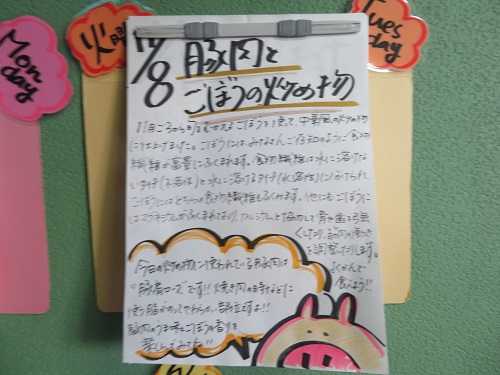 Mon
day
火曜
Tues
day
11/8
豚肉と
ごぼうの炒め物
11月ごろから旬をむかえるごぼうを使って、中華風の炒め物
に仕上げました。ごぼうには、みなさんご存知のように食物
繊維が豊富にふくまれます。食物繊維は水に溶けな
いタイプ(不溶性)と水に溶けるタイプ(水溶性)に分けられ、
ごぼうにはどちらの食物繊維もふくみます。他にもごぼうに
はマグネシウムがふくまれており、カルシウムと協力して骨や歯を強
くしたり、筋肉の動き
を調整したりします。
よくかんで
食べよう!!
今日の炒め物に使われている豚肉は
"豚肩ロース"です!!焼き肉の時などに
使う脂がのってやわらかい部位ですよ!!
豚肉のうま味とごぼうの香りを
楽しんでみてね!!